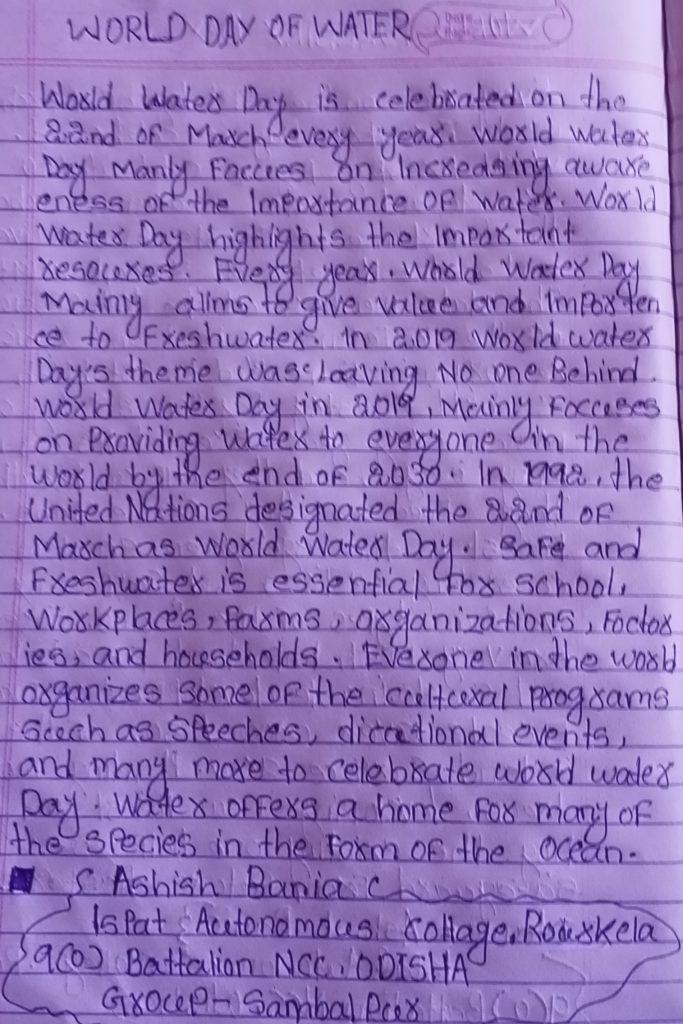 WORLD DAY OF WATER
World Water Day is celebrated on the
22nd of March every year. World Water
Day Manly Faccues on Increasing aware
eness of the Importance OF Water. World
Water Day highlights the Important
resources. Every year. World Water Day
Mainly aiims to give value and Importen
ce to Freshwater. In 2019 World water
Day's theme was: Leaving No one Behind.
World Water Day in 2019, Mainly Foccuses
on Providing Water to everyone in the
World by the end of 2030. In 1992, the
United Nations designated the 22nd of
March as World Water Day. Safe and
Freshwater is essential For school,
Workplaces, Farms, organizations, Factor
ies, and households. Everone in the world
organizes some of the cultural Programs
Such as Speeches, ducational events,
and many more to celebrate World water
Day. Water offers a home For many of
the species in the Form of the ocean.
Ashish Bania
Ispat Autonomous Collage, Rourkela
9(O) Battalion NCC, ODISHA
Group- Sambalpur